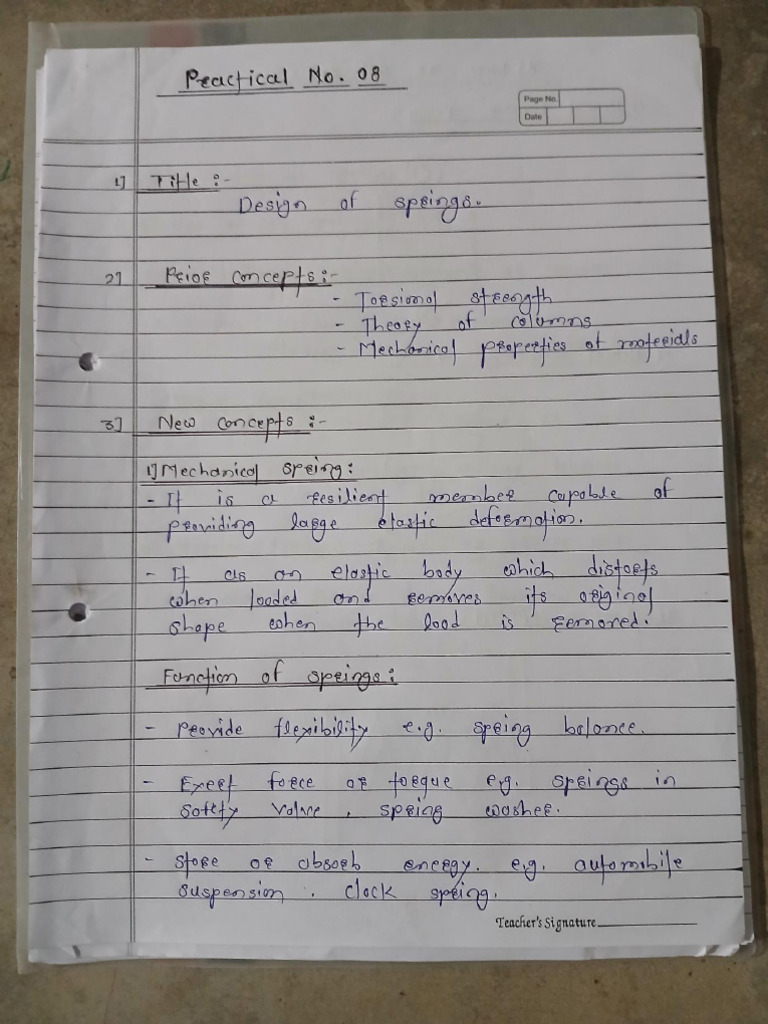 Practical No. 08
Page No.
Date
1] Title :-
Design of springs.
2] Prior concepts :-
- Torsional strength
- Theory of columns
- Mechanical properties of materials
3] New concepts :-
1) Mechanical spring :
- It is a resilient member capable of
providing large elastic deformation.
- It as an elastic body which distorts
when loaded and removes its original
shape when the load is removed.
Function of springs :
- Provide flexibility e.g. spring balance.
- Exert force or torque e.g. springs in
safety valve, spring washer.
- store or absorb energy. e.g. automobile
suspension. clock spring.
Teacher's Signature